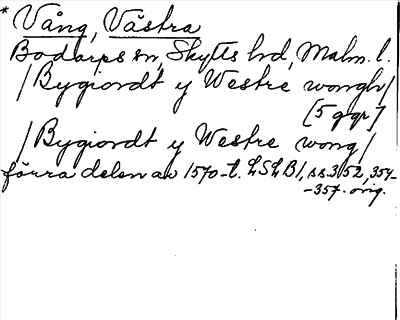 * Vång, Västra
Bodarps sn, Skytts hd, Malm. l.
/Bygiordt y Westre wongh/
[5 ggr]
/Bygiordt y Westre wong/
förra delen av 1570-t. LSLB1, ss. 352, 354-
-357. orig.